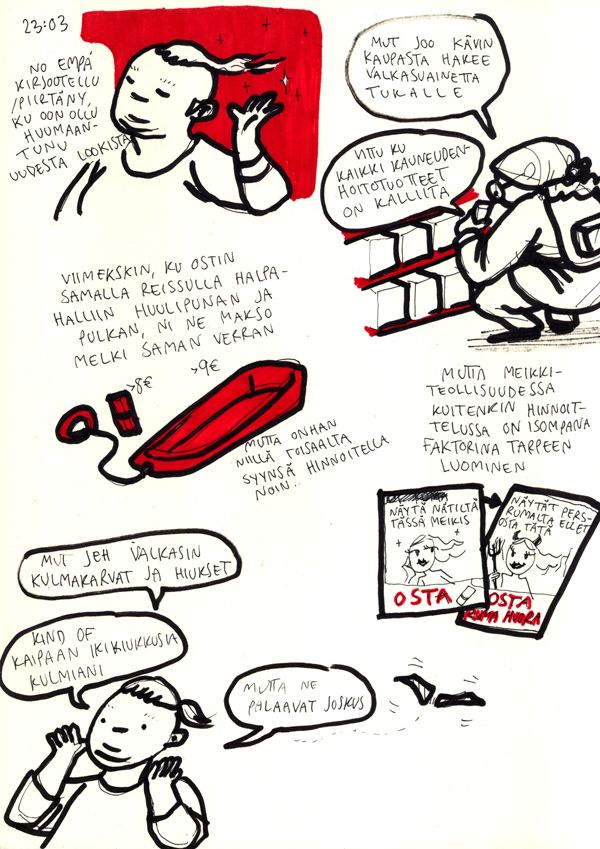 23:03
NO EMPÄ
KIRJOOTELLU
/PIIRTÄNY,
KU OON OLLU
HUUMAAN-
TUNU
UUDESTA LOOKISTA
MUT JOO KÄVIN
KAUPASTA HAKEE
VALKASUAINETTA
TUKALLE
VITTU KU
KAIKKI KAUNEUDEN-
HOITOTUOTTEET
ON KALLIITA
VIIMEKSKIN, KU OSTIN
SAMALLA REISSULLA HALPA-
HALLIIN HUULIPUNAN JA
PULKAN, NI NE MAKSO
MELKI SAMAN VERRAN
>8€
>9€
MUTTA ONHAN
NIILLÄ TOISAALTA
SYYNSÄ HINNOITELLA
NOIN..
MUTTA MEIKKI-
TEOLLISUUDESSA
KUITENKIN HINNOIT-
TELUSSA ON ISOMPANA
FAKTORINA TARPEEN
LUOMINEN
NÄYTÄ NÄTILTÄ
TÄSSÄ MEIKIS
OSTA
NÄYTÄT PERS-
RUMALTA ELLET
OSTA TÄTÄ
OSTA
RUMA HUORA
MUT JEH VALKASIN
KULMAKARVAT JA HIUKSET
KIND OF
KAIPAAN IKIKIUKKUSIA
KULMIANI
MUTTA NE
PALAAVAT JOSKUS